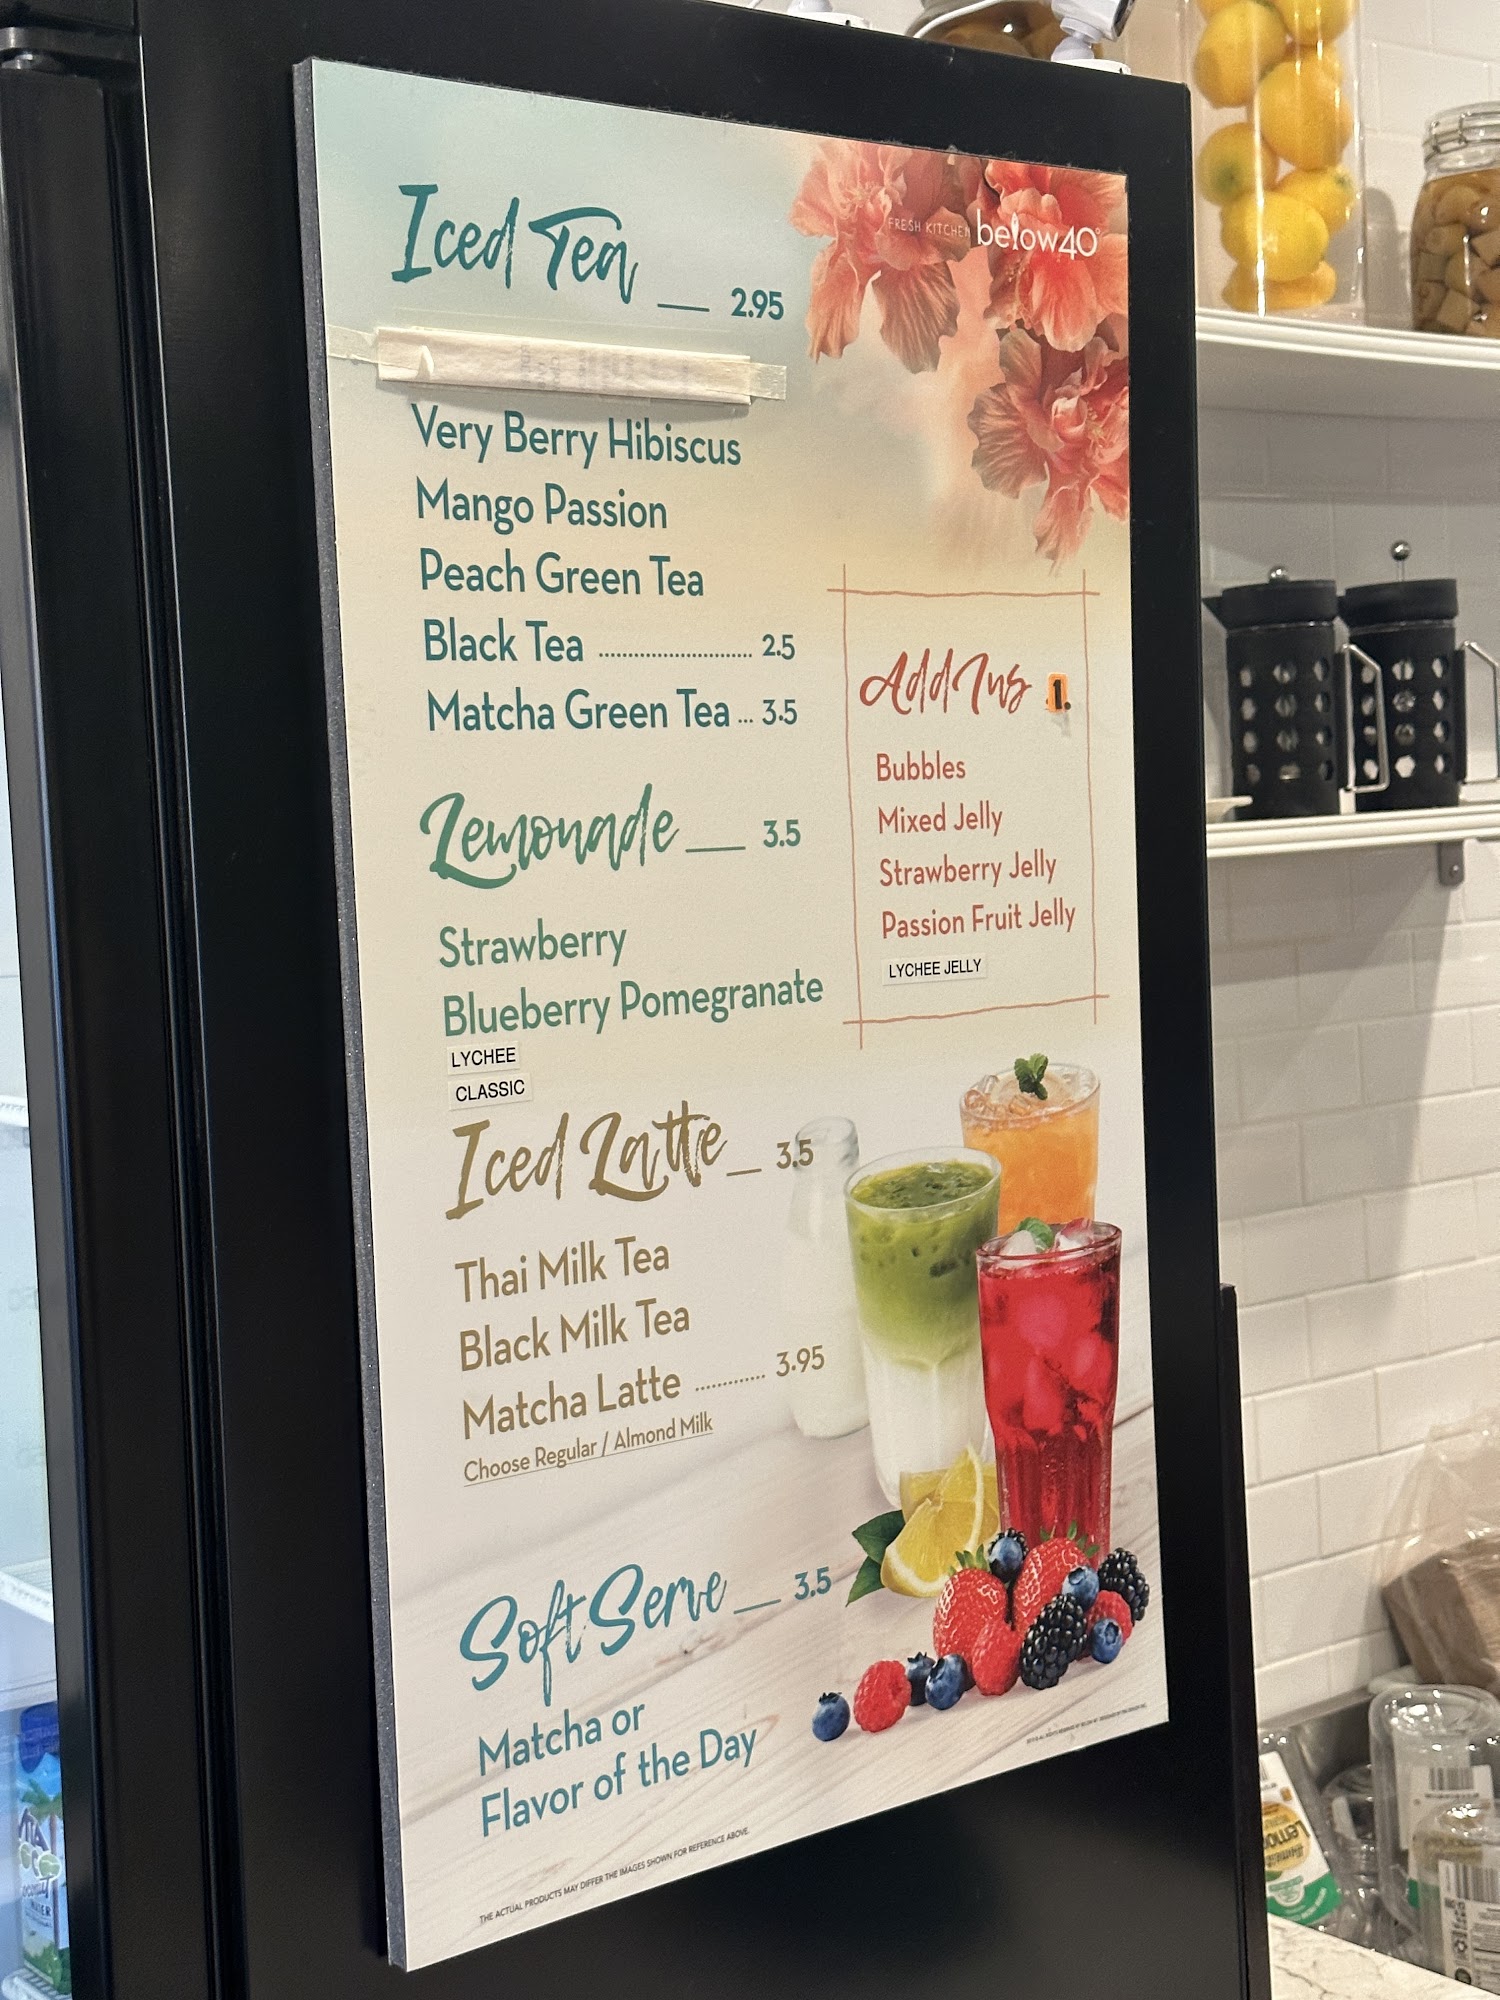 Iced Tea __ 2.95
FRESH KITCHEN below40°
Very Berry Hibiscus
Mango Passion
Peach Green Tea
Black Tea ........................... 2.5
Matcha Green Tea ... 3.5
Add Ins 1.
Bubbles
Mixed Jelly
Strawberry Jelly
Passion Fruit Jelly
LYCHEE JELLY
Lemonade __ 3.5
Strawberry
Blueberry Pomegranate
LYCHEE
CLASSIC
Iced Latte _ 3.5
Thai Milk Tea
Black Milk Tea
Matcha Latte ............. 3.95
Choose Regular / Almond Milk
Soft Serve __ 3.5
Matcha or
Flavor of the Day
THE ACTUAL PRODUCTS MAY DIFFER THE IMAGES SHOWN FOR REFERENCE ABOVE.